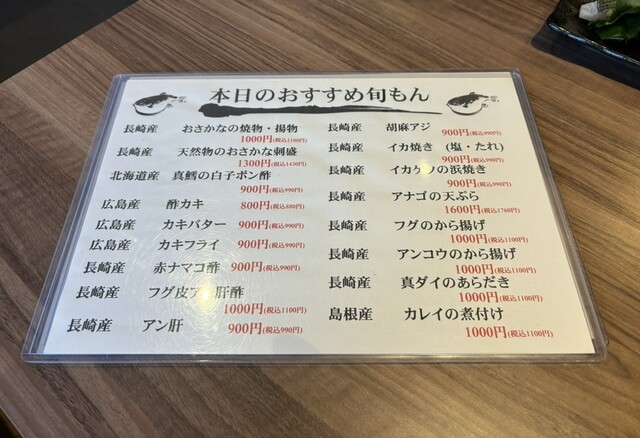 本日のおすすめ旬もん
長崎産 おさかなの焼物・揚物
1000円(税込1100円)
長崎産 天然物のおさかな刺盛
1300円(税込1430円)
北海道産 真鱈の白子ポン酢
900円(税込990円)
広島産 酢カキ 800円(税込880円)
広島産 カキバター 900円(税込990円)
広島産 カキフライ 900円(税込990円)
長崎産 赤ナマコ酢 900円(税込990円)
長崎産 フグ皮 肝酢
1000円(税込1100円)
長崎産 アン肝 900円(税込990円)
長崎産 胡麻アジ 900円(税込990円)
長崎産 イカ焼き (塩・たれ)
900円(税込990円)
長崎産 イカゲソの浜焼き
900円(税込990円)
長崎産 アナゴの天ぷら
1600円(税込1760円)
長崎産 フグのから揚げ
1000円(税込1100円)
長崎産 アンコウのから揚げ
1000円(税込1100円)
長崎産 真ダイのあらだき
1000円(税込1100円)
島根産 カレイの煮付け
1000円(税込1100円)